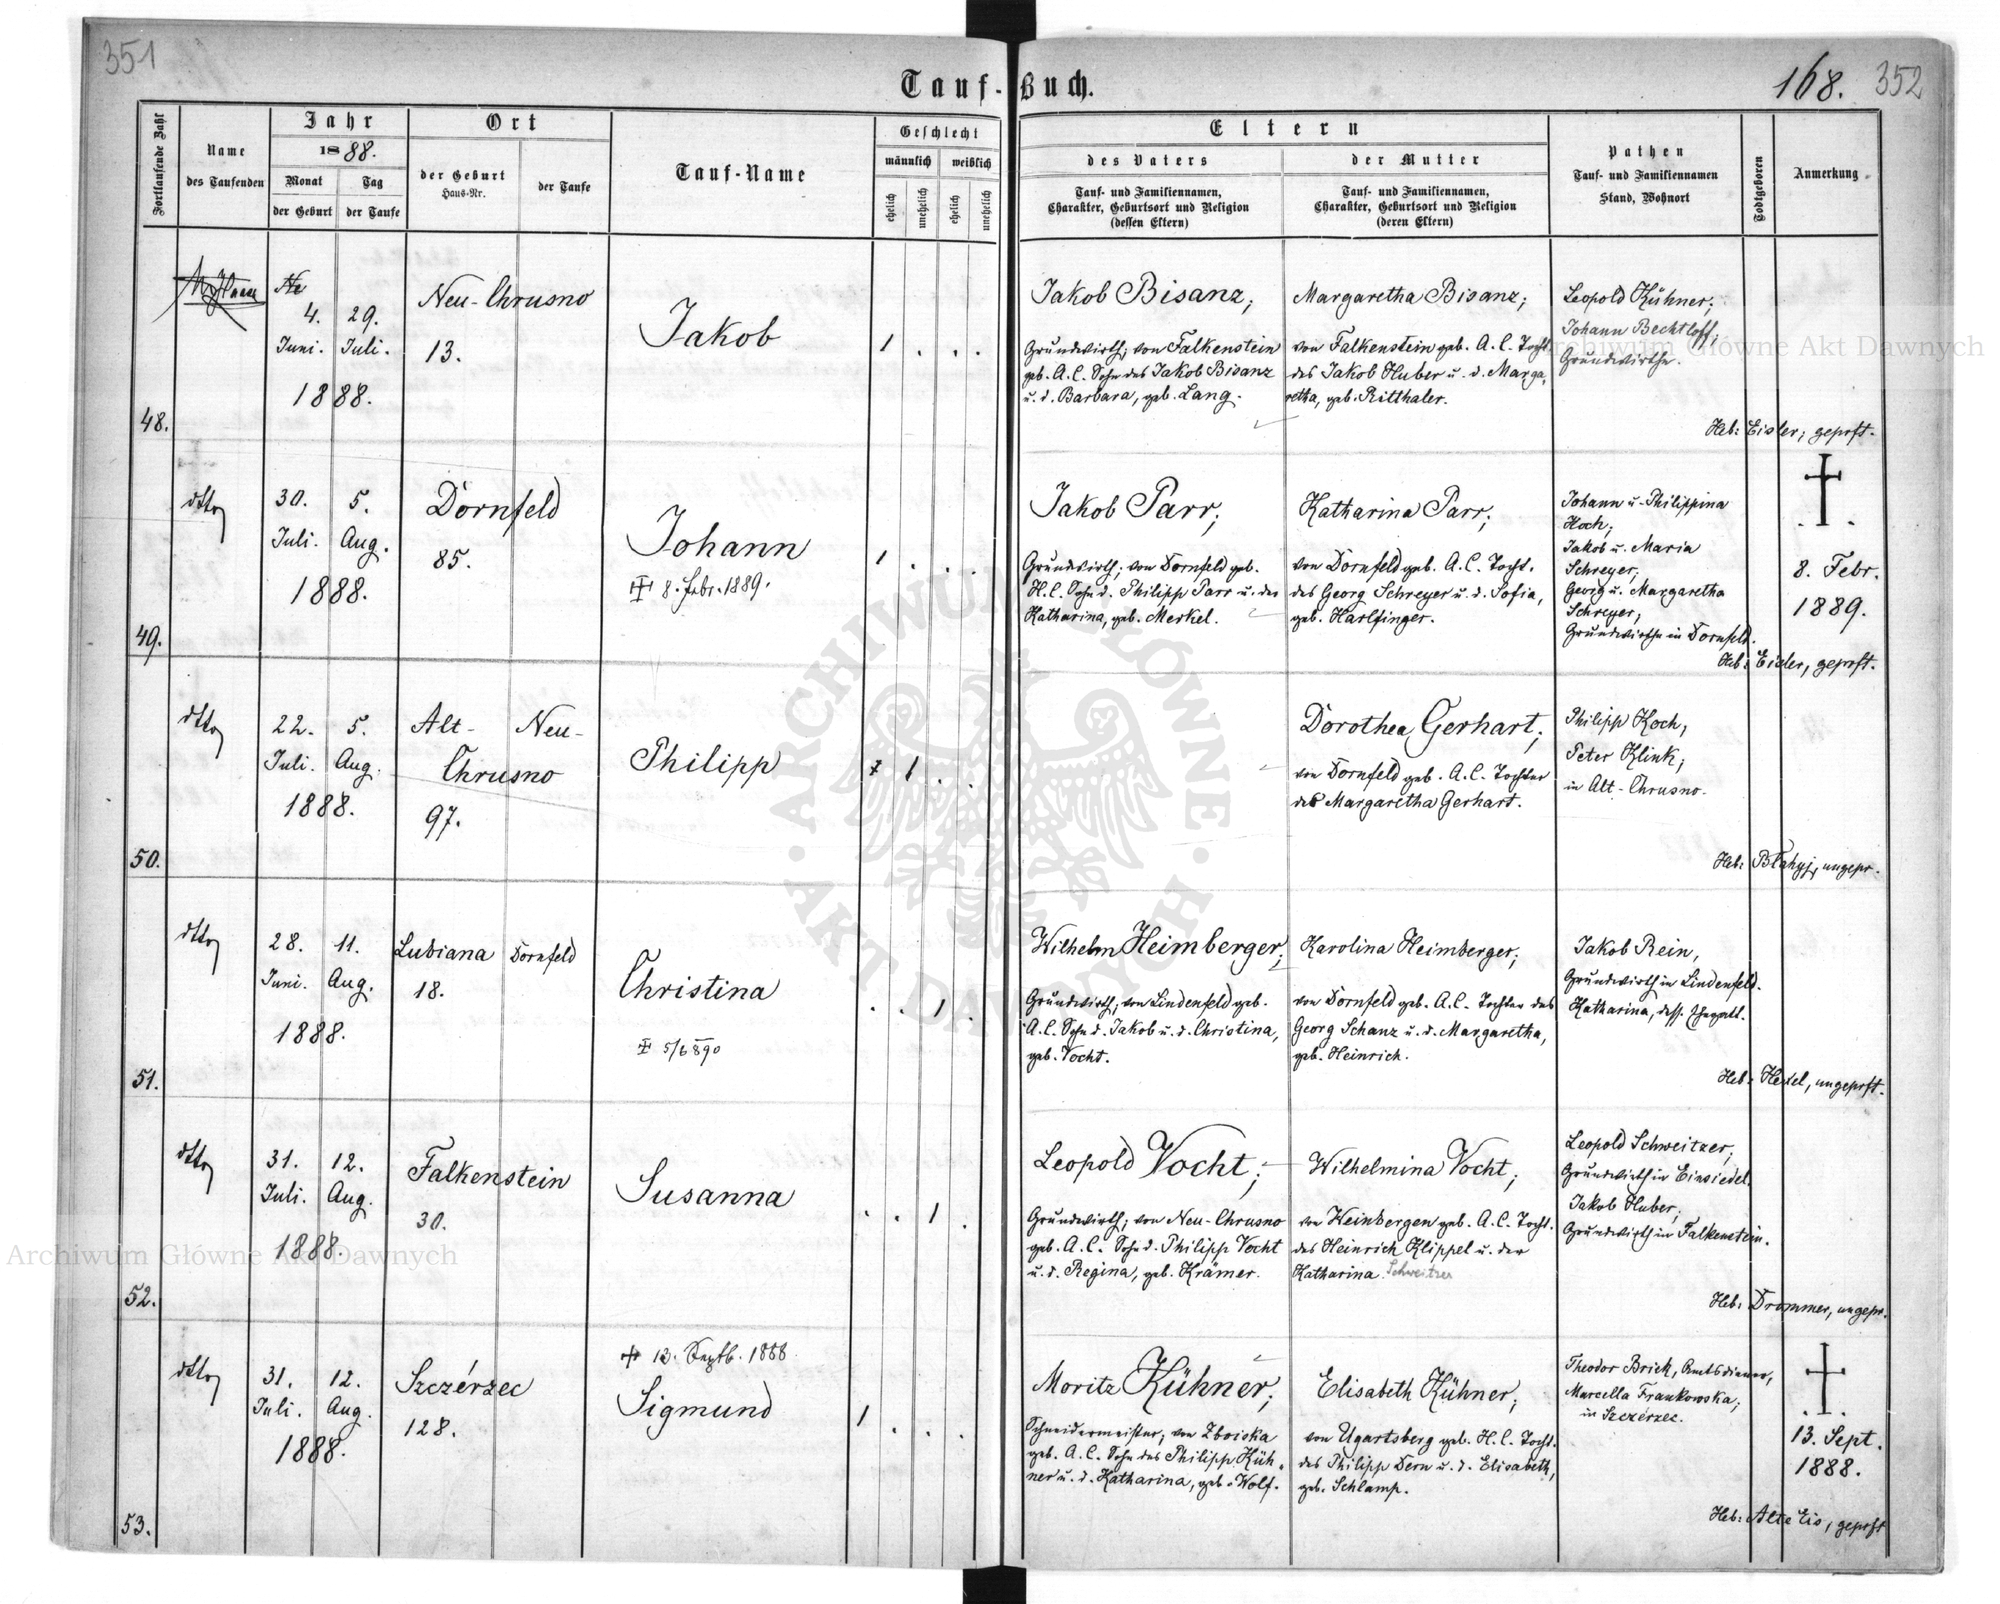 351
Tauf-Buch.
168. 352
Fortlaufende Zahl
Name
des Taufenden
Jahr
1888.
Monat
der Geburt
Tag
der Taufe
Ort
der Geburt
Haus-Nr.
der Taufe
Tauf-Name
Geschlecht
männlich weiblich
ehelich unehelich ehelich unehelich
Eltern
des Vaters
Tauf- und Familiennamen,
Charakter, Geburtsort und Religion
(dessen Eltern)
der Mutter
Tauf- und Familiennamen,
Charakter, Geburtsort und Religion
(deren Eltern)
Pathen
Tauf- und Familiennamen
Stand, Wohnort
Todtgeboren
Anmerkung.
48.
4. 29.
Juni. Juli.
1888.
Neu-Chrusno
13.
Jakob
1 . . .
Jakob Bisanz;
Grundwirth; von Falkenstein
geb. A.C. Sohn des Jakob Bisanz
u. d. Barbara, geb. Lang.
Margaretha Bisanz;
von Falkenstein geb. A.C. Tocht.
des Jakob Huber u. d. Marga-
retha, geb. Ritthaler.
Leopold Kühner;
Johann Bechtloff;
Grundwirthe.
Heb: Eisler; geprft.
49.
dtto
30. 5.
Juli. Aug.
1888.
Dornfeld
85.
Johann
8. Febr. 1889.
1 . . .
Jakob Parr;
Grundwirth; von Dornfeld geb.
H.C. Sohn d. Philipp Parr u. der
Katharina, geb. Merkel.
Katharina Parr;
von Dornfeld geb. A.C. Tocht.
des Georg Schreyer u. d. Sofia,
geb. Harlfinger.
Johann u. Philippina
Koch;
Jakob u. Maria
Schreyer;
Georg u. Margaretha
Schreyer;
Grundwirthe in Dornfeld.
8. Febr.
1889.
Heb: Eisler, geprft.
50.
dtto
22. 5.
Juli. Aug.
1888.
Alt- Neu-
Chrusno
97.
Philipp
1 . .
Dorothea Gerhart;
von Dornfeld geb. A.C. Tochter
der Margaretha Gerhart.
Philipp Koch,
Peter Klink;
in Alt-Chrusno.
Heb: Błahyj, ungepr.
51.
dtto
28. 11.
Juni. Aug.
1888.
Lubiana Dornfeld
18.
Christina
5/6 890
. . 1 .
Wilhelm Heimberger;
Grundwirth; von Lindenfeld geb.
A.C. Sohn d. Jakob u. d. Christina,
geb. Vocht.
Karolina Heimberger;
von Dornfeld geb. A.C. Tochter des
Georg Schanz u. d. Margaretha,
geb. Heinrich.
Jakob Rein,
Grundwirth in Lindenfeld.
Katharina, dess. Ehegatt.
Heb: Hexel, ungeprft.
52.
dtto
31. 12.
Juli. Aug.
1888.
Falkenstein
30.
Susanna
. . 1 .
Leopold Vocht;
Grundwirth; von Neu-Chrusno
geb. A.C. Sohn d. Philipp Vocht
u. d. Regina, geb. Krämer.
Wilhelmina Vocht;
von Weinbergen geb. A.C. Tocht.
des Heinrich Klippel u. der
Katharina Schweitzer
Leopold Schweitzer;
Grundwirth in Einsiedel.
Jakob Huber;
Grundwirth in Falkenstein.
Heb: Drommer, ungepr.
53.
dtto
31. 12.
Juli. Aug.
1888.
Szczérzec
128.
13. Septb. 1888
Sigmund
1 . . .
Moritz Kühner;
Schneidermeister; von Zboiska
geb. A.C. Sohn des Philipp Küh-
ner u. d. Katharina, geb. Wolf.
Elisabeth Kühner;
von Ugartsberg geb. H.C. Tocht.
des Philipp Dern u. d. Elisabeth,
geb. Schlamp.
Theodor Brick, Amtsdiener,
Marcella Frankowska;
in Szczérzec.
13. Sept.
1888.
Heb: Alte Eis, geprft
Archiwum Główne Akt Dawnych
Archiwum Główne Akt Dawnych
ARCHIWUM GŁÓWNE · AKT DAWNYCH ·